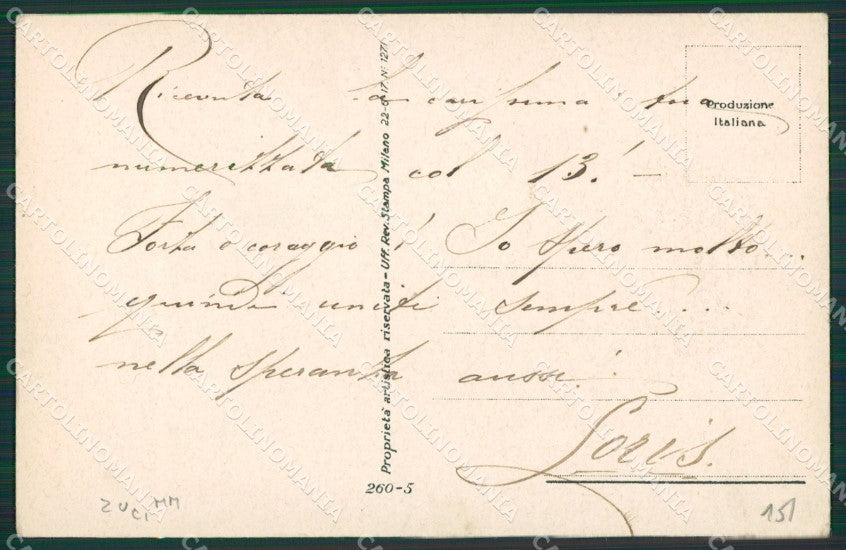 Ricevuta la carissima tua
numerizzata col 13! —
Forza e coraggio! Io spero molto...
quindi uniti sempre...
nella speranza aussi!
Loris.
Produzione
Italiana
Proprietà artistica riservata - Uff. Rev. Stampa Milano 22-6-17. N. 1271
260-5
ZUCI MM
151
CARTOLINOMANIA